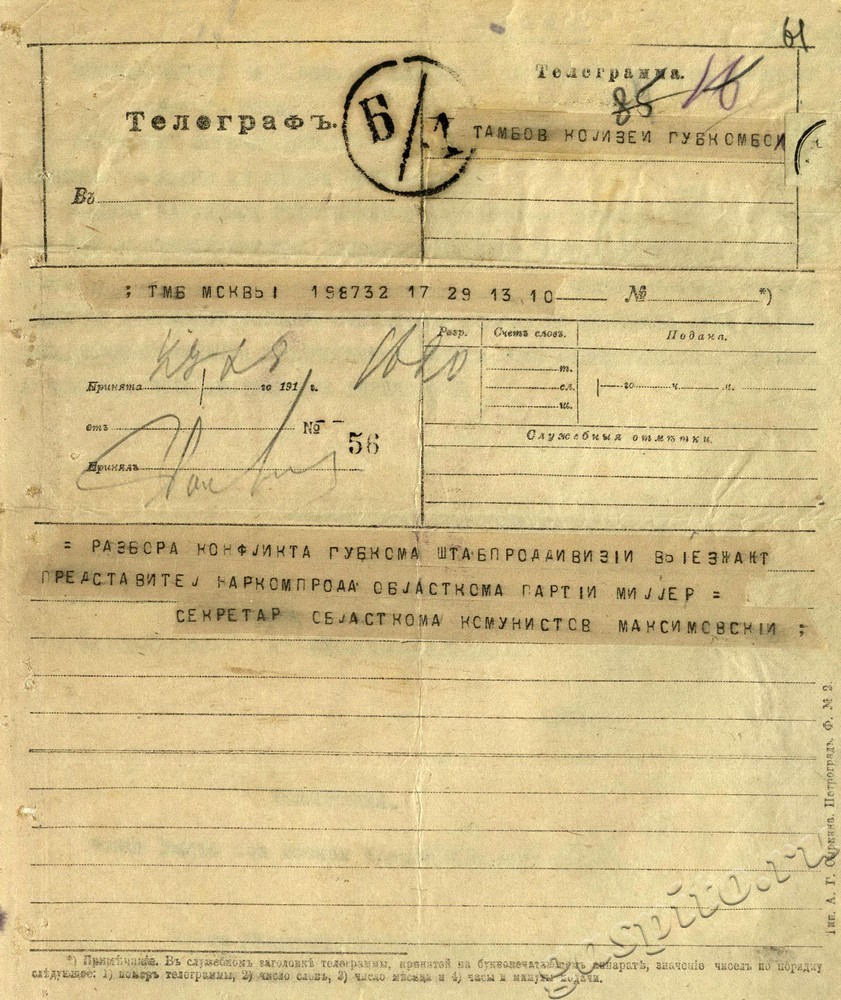 61
Телеграмма.
85 16
Телеграфъ.
Б/Д
ТАМБОВ КОЛИЗЕИ ГУБКОМБОЛ
Въ
; ТМБ МСКВЫ 198732 17 29 13 10 № *)
Разр. Счетъ словъ. Подана.
т. сл. ш.
го ч. м.
Принята го 191 г. 1620
отъ № 56
Служебныя отмѣтки.
Принялъ
= РАЗБОРА КОНФЛИКТА ГУБКОМА ШТАБПРОДДИВИЗІИ ВЫЕЗЖАКТ
ПРЕДСТАВИТЕЛ НАРКОМПРОДА ОБЛАСТКОМА ПАРТІИ МИЛЛЕР =
СЕКРЕТАР ОБЛАСТКОМА КОМУНИСТОВ МАКСИМОВСКІЙ ;
*) Примѣчаніе. Въ служебномъ заголовкѣ телеграммы, принятой на буквопечатающемъ аппаратѣ, значеніе чиселъ по порядку
слѣдующее: 1) номеръ телеграммы, 2) число словъ, 3) число мѣсяца и 4) часы и минуты подачи.
Тип. А. Г. Петроградъ. Ф. № 2.